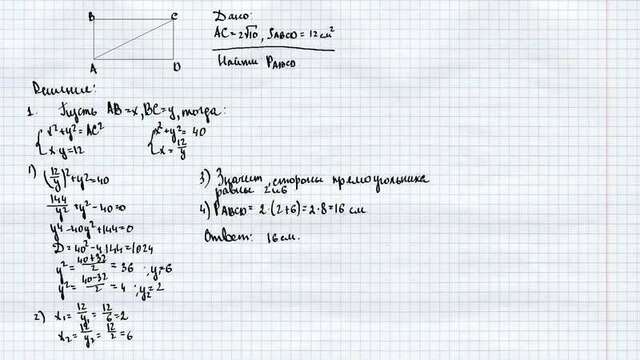 B C
A D
Дано:
AC = 2√10, SABCD = 12 см²
Найти PABCD
Решение:
1. Пусть AB = x, BC = y, тогда:
{ x² + y² = AC²
x·y = 12
{ x² + y² = 40
x = 12/y
1) (12/y)² + y² = 40
144/y² = y² - 40 = 0
y⁴ - 40y² + 144 = 0
D = 40² - 4·144 = 1024
y² = (40+32)/2 = 36 ; y₁ = 6
y² = (40-32)/2 = 4 ; y₂ = 2
2) x₁ = 12/y₁ = 12/6 = 2
x₂ = 12/y₂ = 12/2 = 6
3) Значит, стороны прямоугольника
равны 2 и 6
4) PABCD = 2·(2+6) = 2·8 = 16 см
Ответ: 16 см.